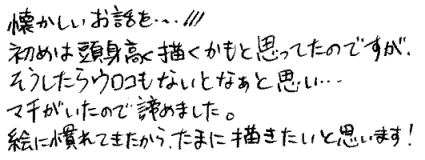 懐かしいお話を…///
初めは頭身高く描くかもと思ってたのですが、
そうしたらウロコもないとなぁと思い…
マチがいたので諦めました。
絵に慣れてきたから、たまに描きたいと思います!